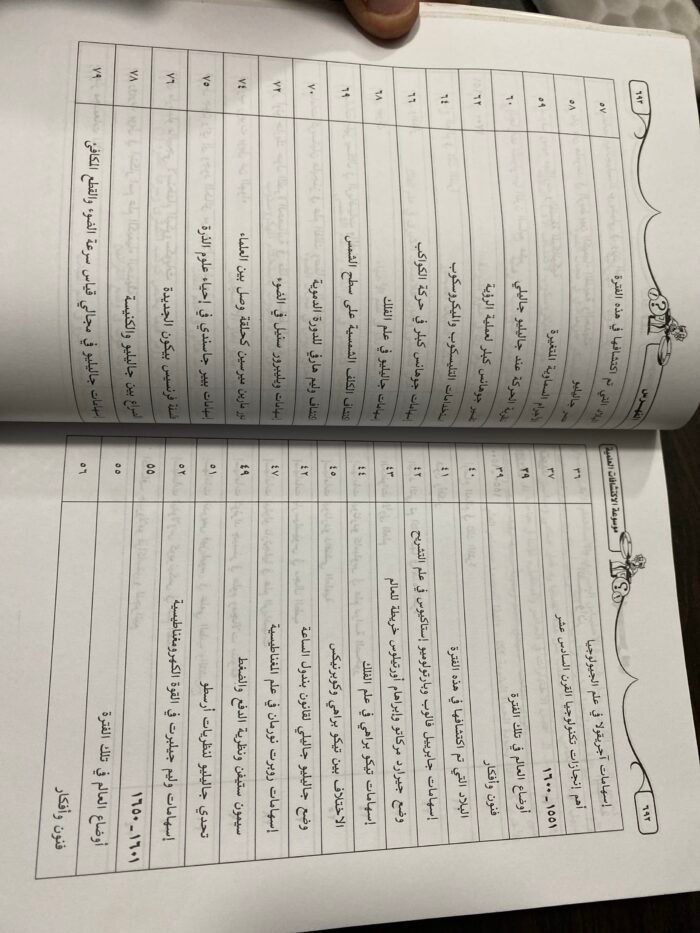 موسوعة الاكتشافات العلمية
٦٩٢
إسهامات أجريقولا في علم الجيولوجيا ٣٦
أهم إنجازات تكنولوجيا القرن السادس عشر ٣٧
١٥٥١-١٦٠٠ ٣٩
أوضاع العالم في تلك الفترة ٣٩
فنون وأفكار ٤٠
البلاد التي تم اكتشافها في هذه الفترة ٤١
إسهامات جابرييل فالوب وبارتولوميو إستاكيوس في علم التشريح ٤٢
وضع جيرارد مركاتو وإبراهام أورتيلوس خريطة للعالم ٤٣
إسهامات تيكو براهي في علم الفلك ٤٤
الاختلاف بين تيكو براهي وكوبرنيكس ٤٥
وضع جاليليو جاليلي لقانون بندول الساعة ٤٦
إسهامات روبرت نورمان في علم المغناطيسية ٤٧
سيمون ستيفن ونظرية الدفع والضغط ٤٩
تحدي جاليليو لنظريات أرسطو ٥١
إسهامات وليم جيلبرت في القوة الكهرومغناطيسية ٥٢
١٦٠١-١٦٥٠ ٥٥
أوضاع العالم في تلك الفترة ٥٥
فنون وأفكار ٥٦
الفهرس
٦٩٣
التي تم اكتشافها في هذه الفترة ٥٧
جاليليو ٥٨
الأجرام السماوية المتغيرة ٥٩
الحركة عند جاليليو جاليلي ٦٠
جوهانس كبلر لعملية الرؤية ٦٢
التليسكوب والميكروسكوب ٦٤
إسهامات جوهانس كبلر في حركة الكواكب ٦٦
إسهامات جاليليو في علم الفلك ٦٨
اكتشاف الكلف الشمسية على سطح الشمس ٦٩
اكتشاف وليم هارفي للدورة الدموية ٧٠
إسهامات ويليبرور سنيل في الضوء ٧٢
مارين ميرسين كحلقة وصل بين العلماء ٧٤
إسهامات بيير جاسندي في إحياء علوم الذرة ٧٥
فلسفة فرنسيس بيكون الجديدة ٧٦
الصراع بين جاليليو والكنيسة ٧٨
إسهامات جاليليو في مجالي قياس سرعة الضوء والقطع المكافئ ٧٩